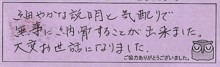 細やかな説明と気配りで
無事に内骨することが出来ました。
大変お世話になりました。
ご協力ありがとうございました。